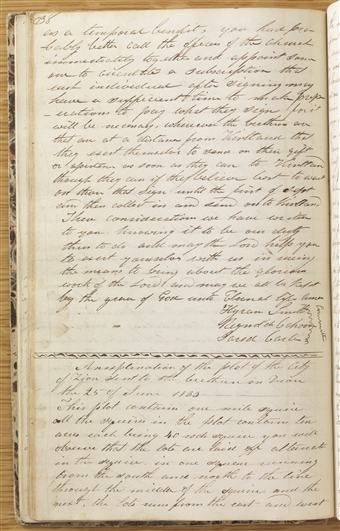 38
as a temporal benefit, you had pro
bably better call the officers of the Church
immediately together and appoint some
one to circulate a subscription that
each individual after signing may
have a sufficient time to make prepa
-rations to pay what they sign for it
will be necessary wherever the brethren are
that are at a distance from Kirtland that
they exert themselves to send on their gift
or offering as soon as they can to Kirtland
though they can if they believe best to wait
on them that sign until the first of Sept
and then collect in and send on to Kirtland
These considerations we have written
to you knowing it to be our duty
thus to do and may the Lord help you
to exert yourselves with us in raising
the means to bring about the glorious
work of the Lord and may we all be kept
by the grace of God unto Eternal life Amen
Hyrum Smith
Reynolds Cahoon
Jared Carter
Committee
An explanation of the plot of the City
of Zion sent to the brethren in Zion
the 25th of June 1833
This plot contains one mile square
all the squares in the plot contain ten
acres each being 40 rods square you will
observe that the lots are laid off alternate
in the squares in one square running
from the south and north to the line
through the middle of the square and the
next, the lots runs from the east and west